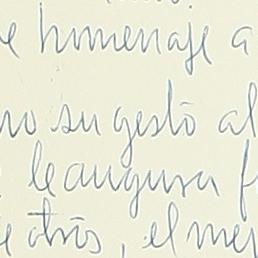 e homenaje a
no su gestō al
leaugura f
e otrōs, el mer